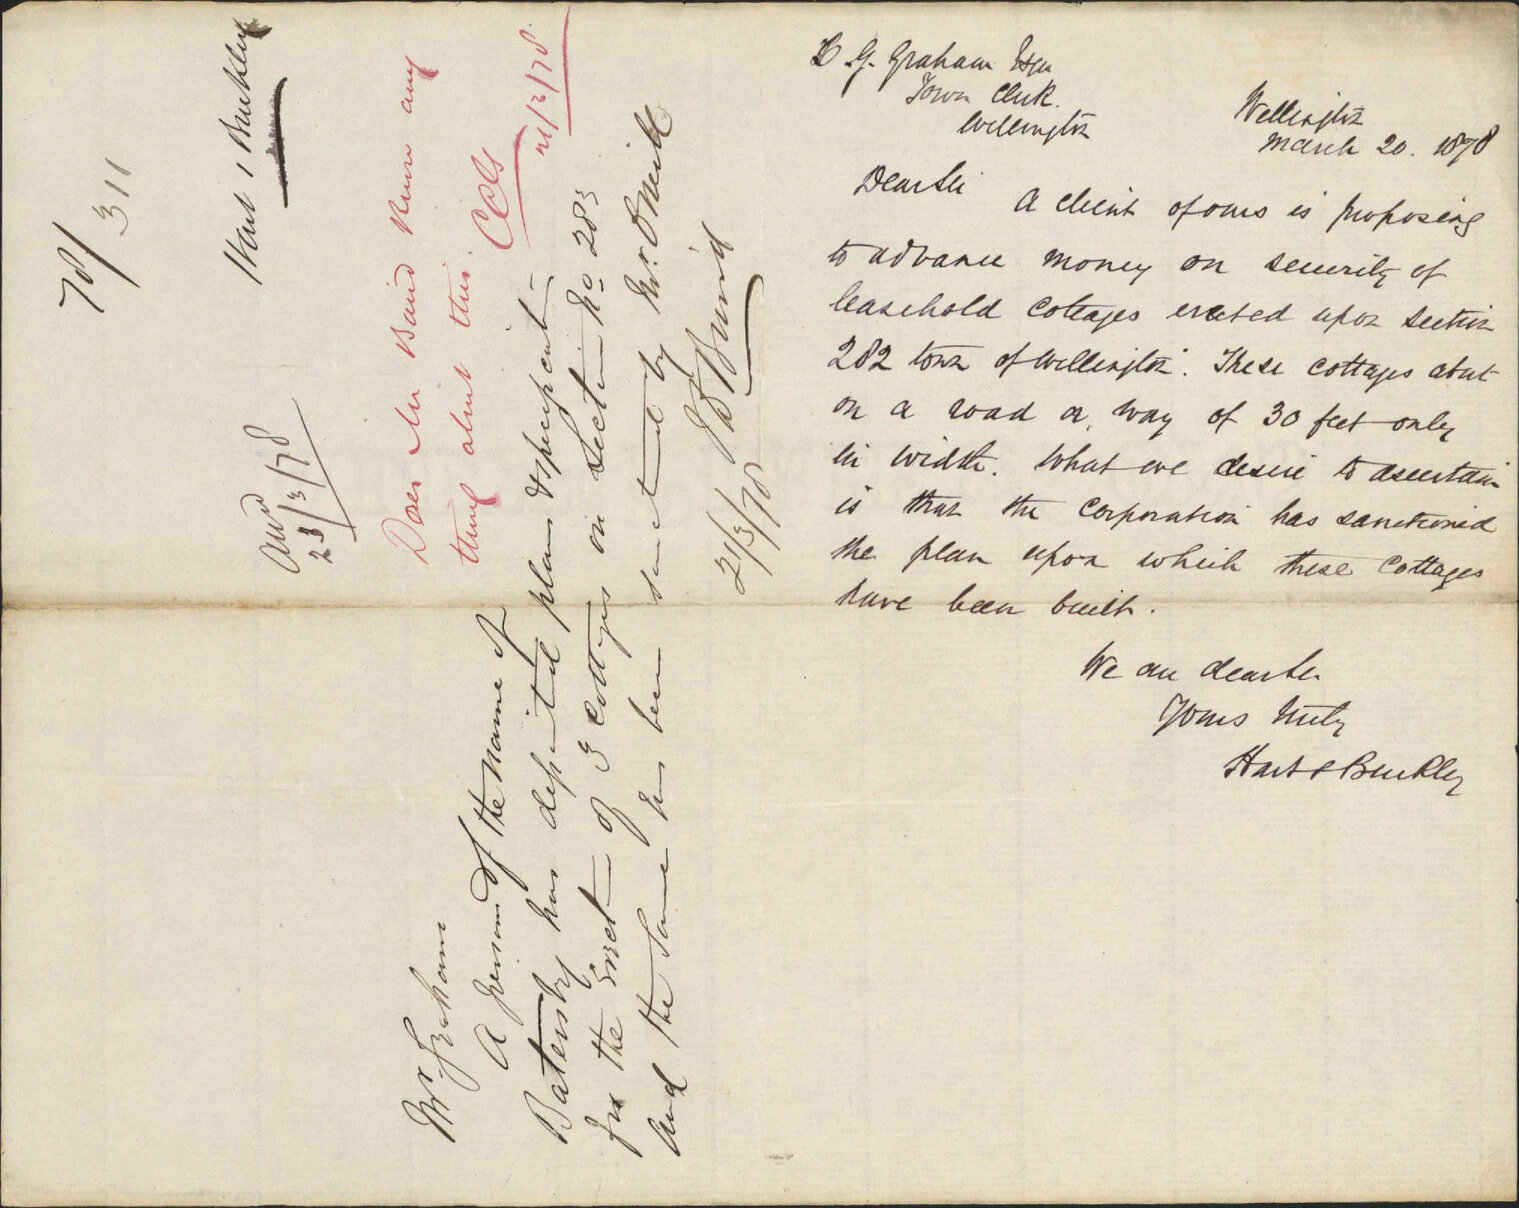 C. G. Graham Esqre
Town Clerk.
Wellington
Wellington
March 20. 1878
Dear Sir
A client of ours is proposing
to advance money on security of
leasehold cottages erected upon section
282 town of Wellington. These cottages abut
on a road or way of 30 feet only
in width. What we desire to ascertain
is that the Corporation has sanctioned
the plan upon which these cottages
have been built.
We are dear Sir
Yours truly
Hart & Buckley
78/311
Hart & Buckley
Ansd
23/3/78
Does Mr Baird know any
thing about this.
CCG
21/3/78
Mr. Graham
A person of the name of
Batersby has deposited plans & specification
for the erect-n of 3 cottages on Section No 283
and the same has been sanctioned by Mr. O'Neill
J D Baird
21/3/78